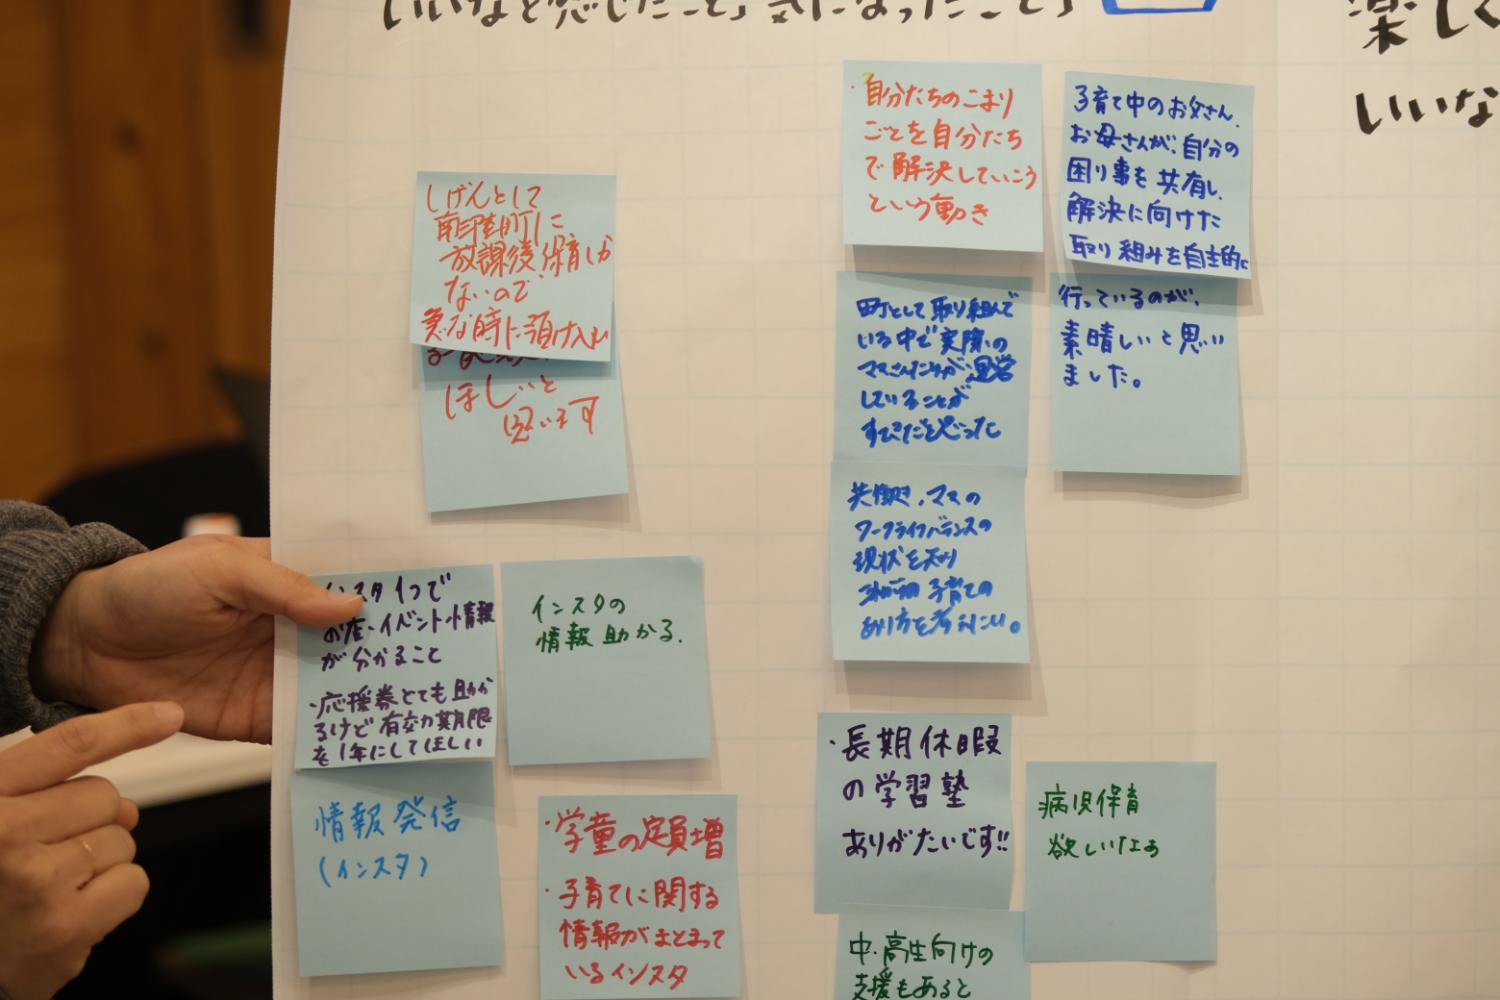 いいなと感じたこと、気になったこと、
楽しく
いいな
しげんとして
南印旛町に
放課後保育しか
ないので
急な時に預け入れ
ほしいと
思います
・自分たちのこまり
ごとを自分たち
で解決していこう
という動き
子育て中のお父さん、
お母さんが、自分の
困り事を共有し、
解決に向けた
取り組みを自主的に
行っているのが、
素晴しいと思い
ました。
町として取り組んで
いる中で実際の
ママさんたちが運営
していることが
すてきだと思った
共働き、ママの
ワークライフバランスの
現状を知り
子育ての
あり方を考えたい。
インスタ1つで
お店・イベント情報
が分かること
・応援券とても助か
るけど有効期限
を1年にしてほしい
インスタの
情報助かる。
情報発信
(インスタ)
・学童の定員増
・子育てに関する
情報がまとまって
いるインスタ
・長期休暇
の学習塾
ありがたいです!!
病児保育
欲しいなぁ
中・高生向けの
支援もあると